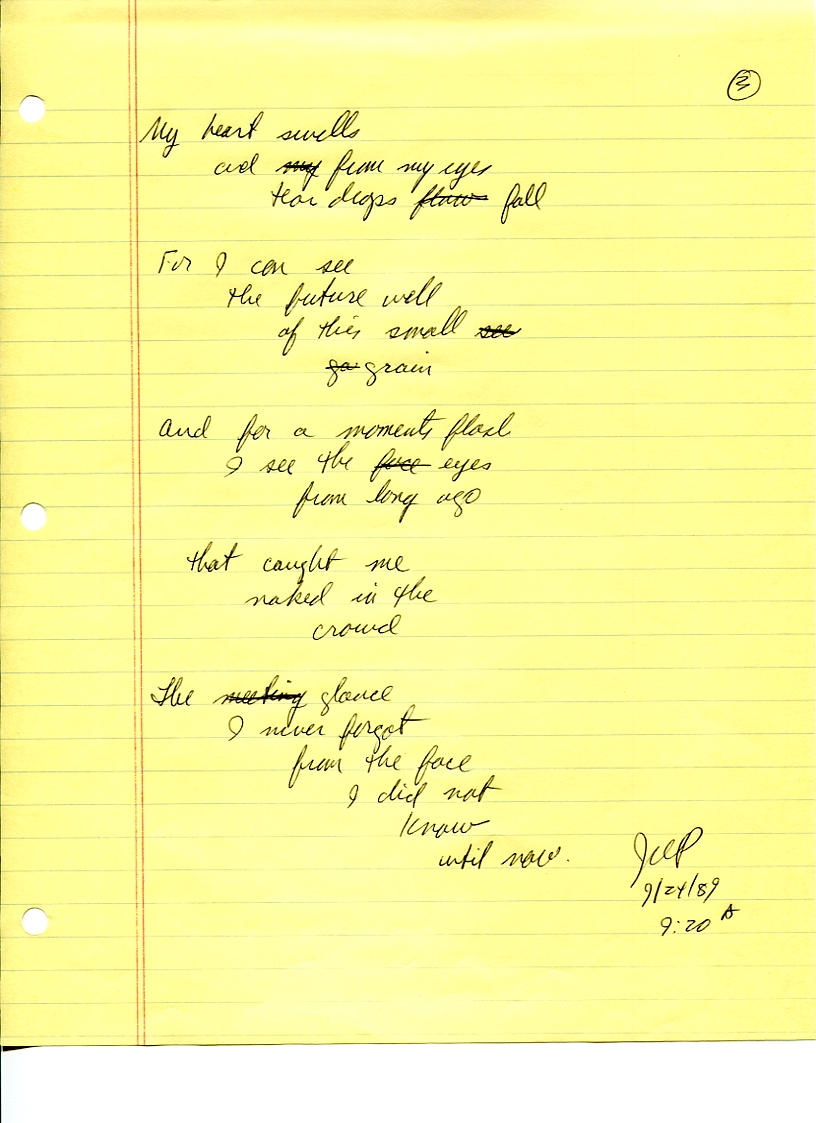 3
My heart swells
and my from my eyes
tear drops flow fall
For I can see
the future well
of this small see
ga grain
And for a moments flash
I see the face eyes
from long ago
that caught me
naked in the
crowd
The meeting glance
I never forgot
from the face
I did not
know
until now.
9/24/89
9:20 A